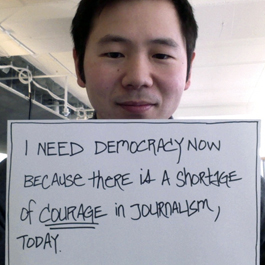 I NEED DEMOCRACY NOW
BECAUSE THERE IS A SHORTAGE
OF COURAGE IN JOURNALISM,
TODAY.